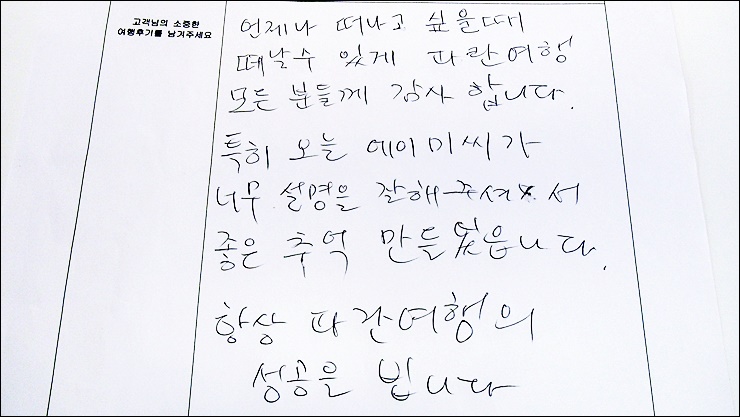 고객님의 소중한
여행후기를 남겨주세요
언제나 떠나고 싶을때
떠날수 있게 파란여행
모든 분들께 감사 합니다.
특히 오늘 에이미씨가
너무 설명을 잘해주셔서
좋은 추억 만들었읍니다.
항상 파란여행의
성공을 빕니다